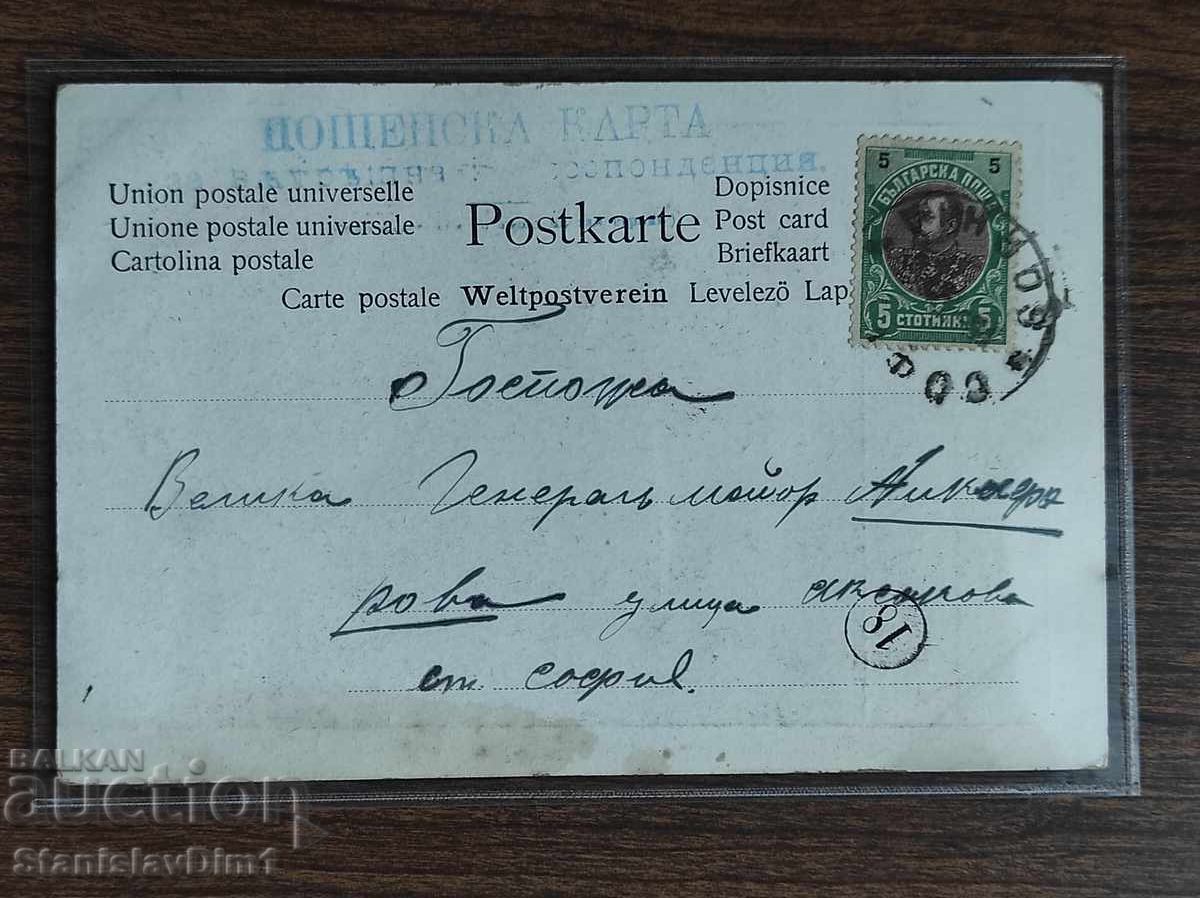 ПОЩЕНСКА КАРТА
Union postale universelle
Unione postale universale
Cartolina postale
Postkarte
Dopisnice
Post card
Briefkaart
Carte postale Weltpostverein Levelezö Lap
5 5
БЪЛГАРСКА ПОЩА
5 СТОТИНКИ 5
Госпожа
Велика Генералъ майор
рова улица
ст. София.
18
BALKAN
auction
StanislavDim1